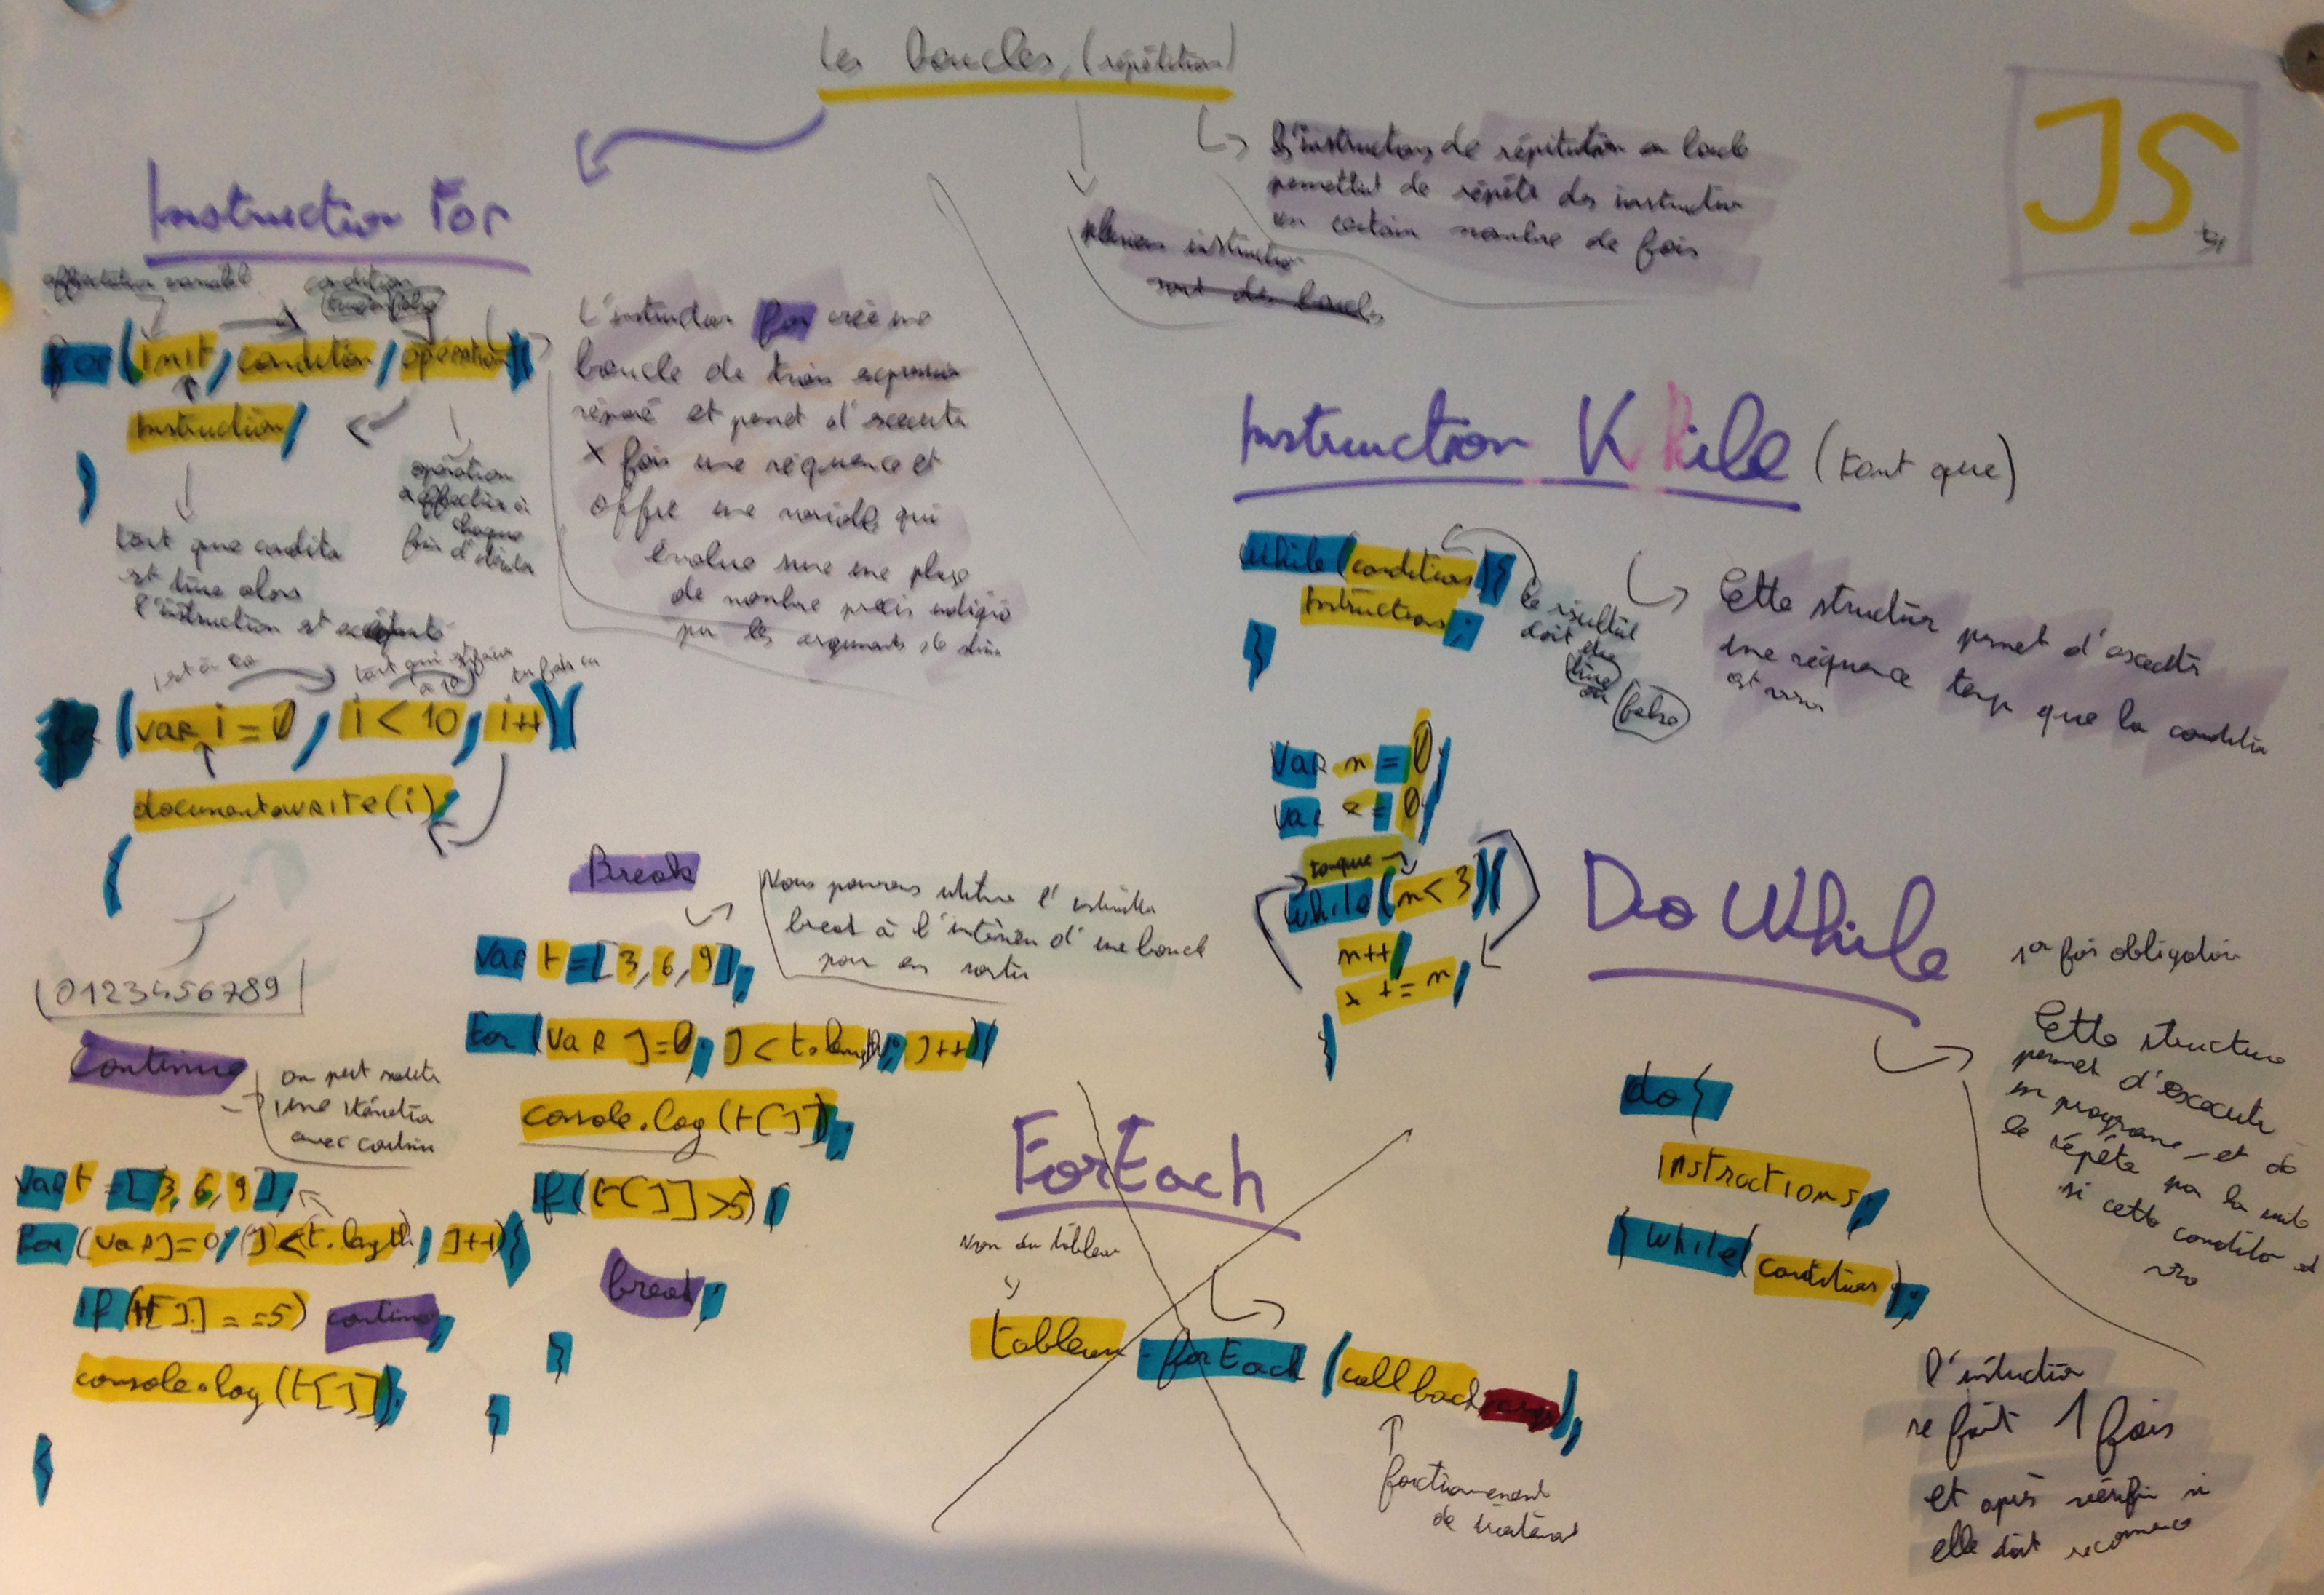 Les Boucles (répétition)
JS
Les instructions de répétition en boucle
permettent de répéter des instruction
un certain nombre de fois
plusieurs instruction
sont des boucles
Instruction For
affectation variable
condition
for (init, condition, opération){
Instruction;
}
opération
à effectuer à
chaque
fois d'
tant que condition
est true alors
l'instruction est
L'instruction for créé une
boucle de trois expression
séparé et permet d'executer
X fois une séquence et
offre une variable qui
évolue sur une plage
de nombre précis
par les arguments
for (var i = 0, i < 10, i++){
document.write(i);
0123456789
Continue
on peut sauter
une itération
avec
var t = [3, 6, 9];
for (var J=0; J < t.length; J++){
if (t[J] === 5) continue;
console.log(t[J]);
}
Break
Nous pouvons utiliser l'
break à l'intérieur d'une boucle
pour en sortir
var t = [3, 6, 9];
for (var J=0; J < t.length; J++){
console.log(t[J]);
if (t[J] > 5) {
break;
}
}
Instruction While (tant que)
while (conditions){
Instructions;
}
le résultat
doit être
true
ou
false
Cette structure permet d'
une séquence que la condition
est
var n = 0;
var x = 0;
tanque
while (n < 3){
n++;
x += n;
}
Do While
1er fois obligatoire
do {
instructions;
} while (conditions);
Cette structure
permet d'executer
un programe et de
le répéter par la suite
si cette condition est
l'instruction
se fait 1 fois
et après vérifie si
elle doit recommence
ForEach
Nom du tableau
tableau.forEach (callback
fonctionement
de